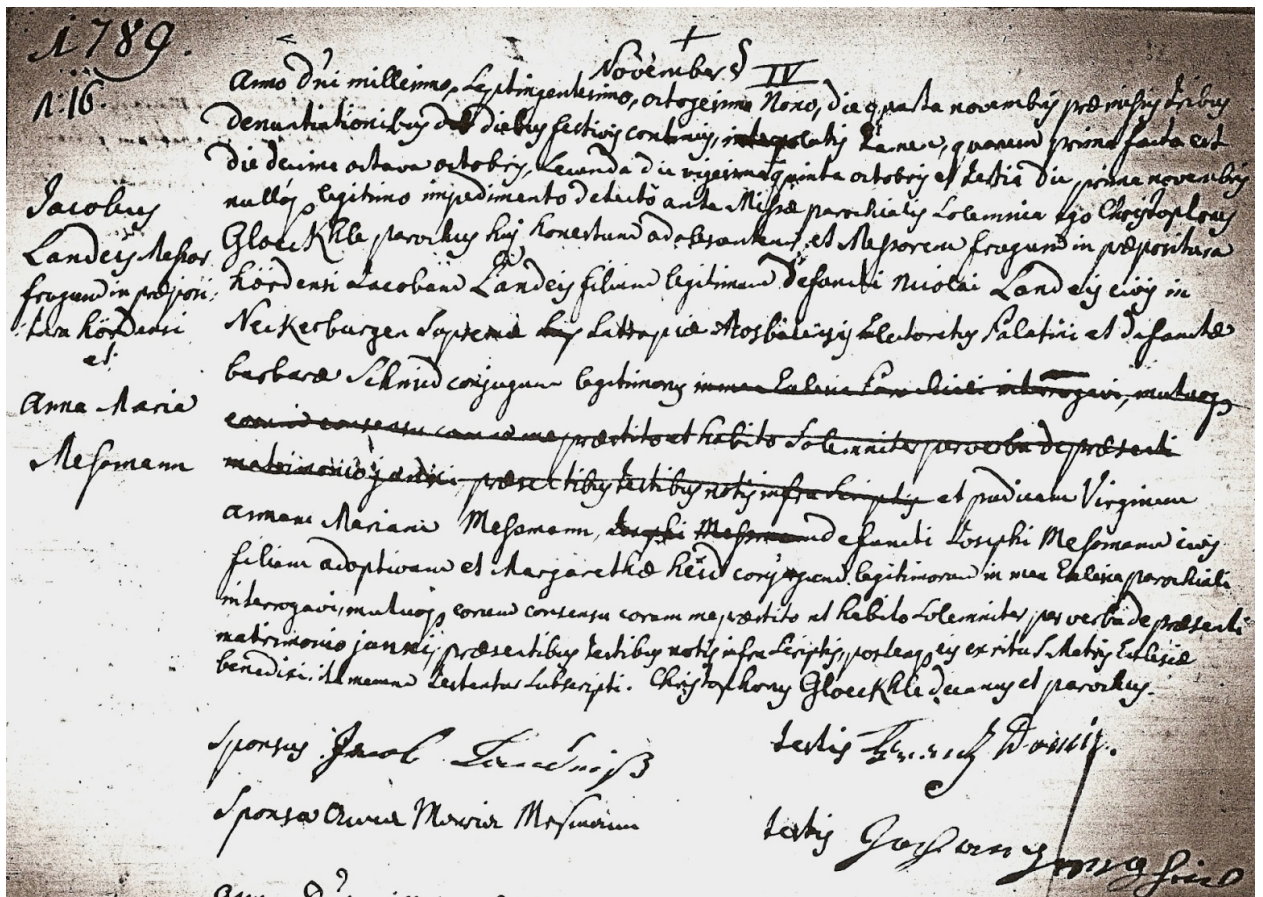 1789.
N: 16.
Novembris IV
Anno dni millesimo, septingentesimo, octogesimo Nono, die quarta novembris præmissis tribus
denuntiationibus diebus festivis continuis, tamen, quarum prima facta est
die decima octava octobris, secunda die vigesima quinta octobris et tertia die prima novembris
nulloq legitimo impedimento detecto ante Missæ parochialis solemnia ego Christophorus
Gloeckhle parochus huj honestum adolescentem, et Messorem frugum in præpositura
hördensi Jacobum Landeis filium legitimum defuncti Nicolai Landeis civis in
Neckerburgen supremæ Satrapiæ Mosbacensis Electoratus Palatini et defunctæ
barbaræ Schmid conjugum legitimorum in mea Ecclesia Parochiali interrogavi, mutuoq
eorum consensu coram me præstito et habito Solemniter per verba de præsenti
matrimonio junxi, præsentibus testibus notis infra scriptis et pudicam Virginem
Annam Mariam Messmann, Josephi Messmann defuncti Josephi Messmann civis
filiam adoptivam et Margarethæ heid conjugum legitimorum in mea Ecclesia parochiali
interrogavi, mutuoq eorum consensu coram me præstito et habito solemniter per verba de præsenti
matrimonio junxi, præsentibus testibus notis infra scriptis, posteaq eis ex ritu S Matris Ecclesiæ
benedixi. ita mecum testantur subscripti. Christophorus Gloeckhle decanus et parochus.
Jacobus
Landeis Messor
frugum in præposi:
tura hördensi
et
Anna Maria
Messmann
Sponsus Jacob
testis
Sponsa Anna Maria Messmann
testis